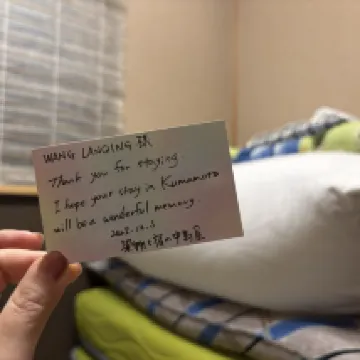 WANG LANQING 様
Thank you for staying
I hope your stay in Kumamoto
will be a wonderful memory.